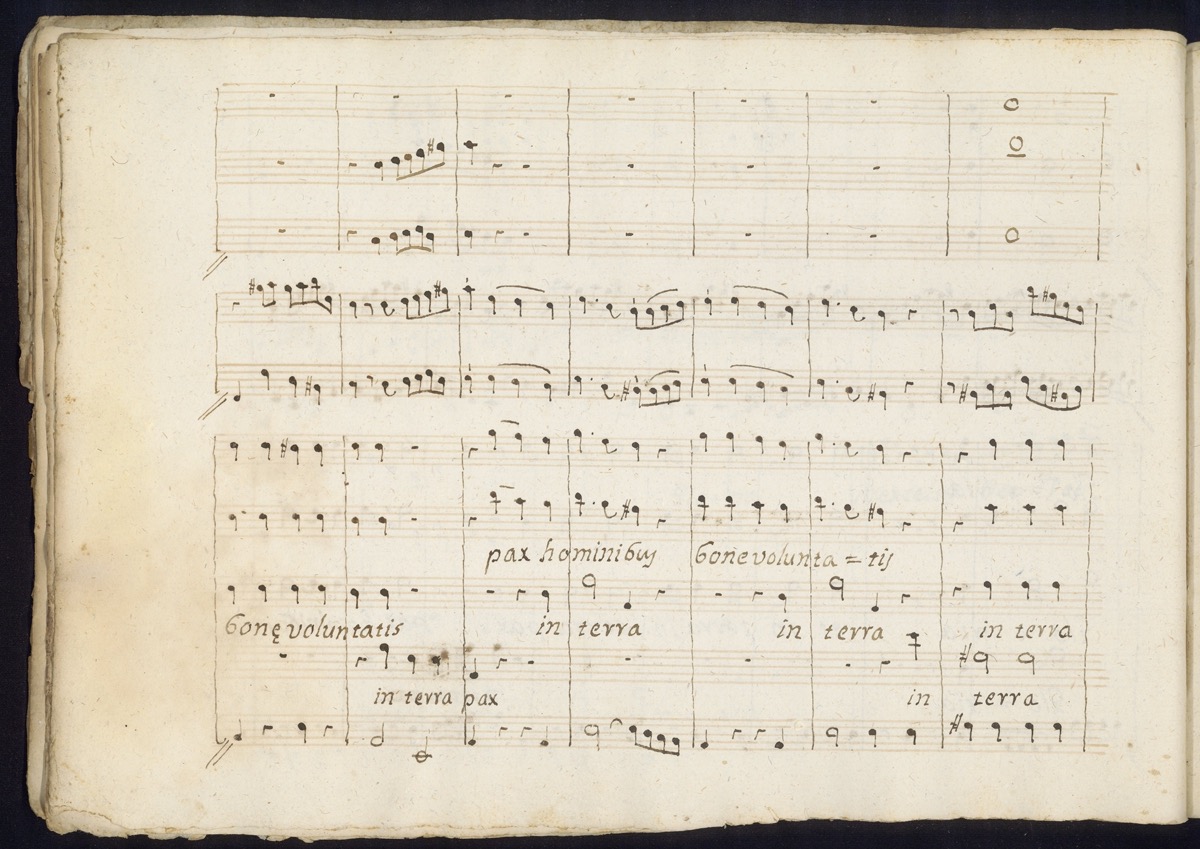 pax hominibus bone volunta = tis
bonę voluntatis in terra in terra in terra
in terra pax in terra